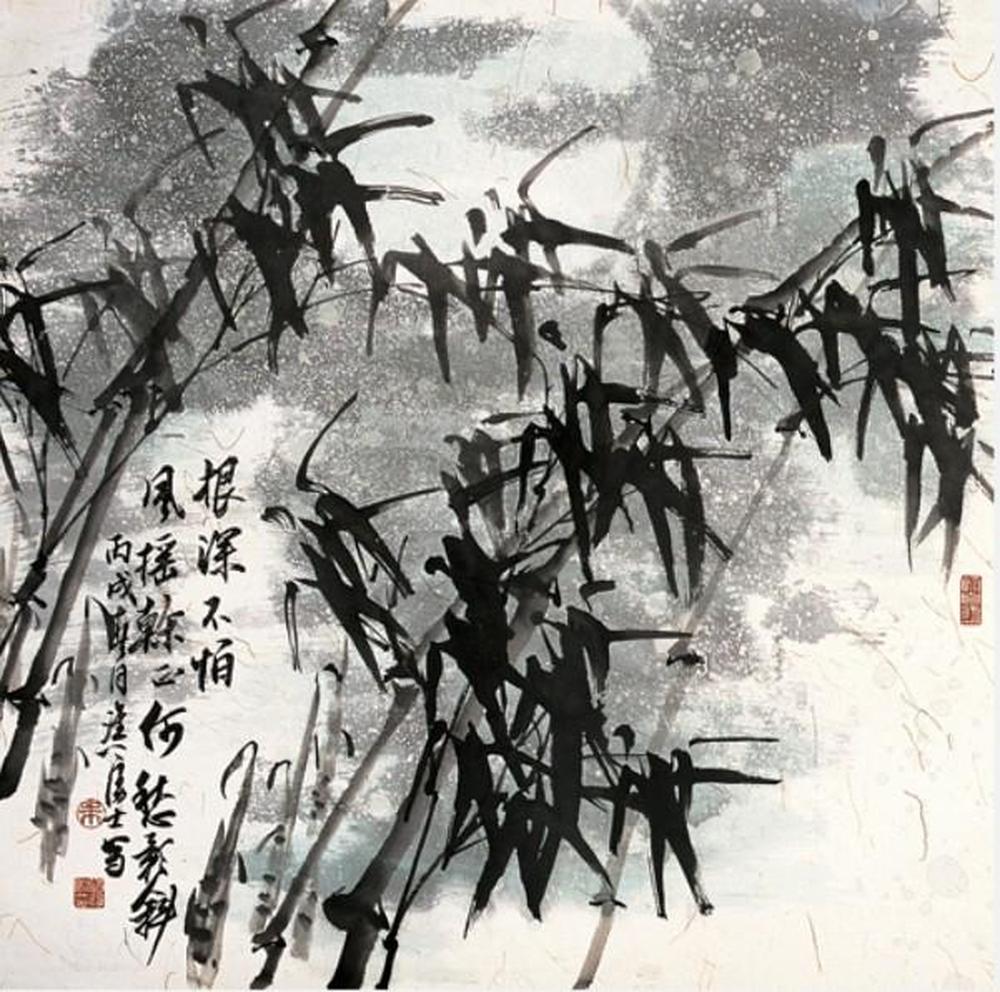 根深不怕
风摇幹正何愁影斜
丙戌年月
居士写